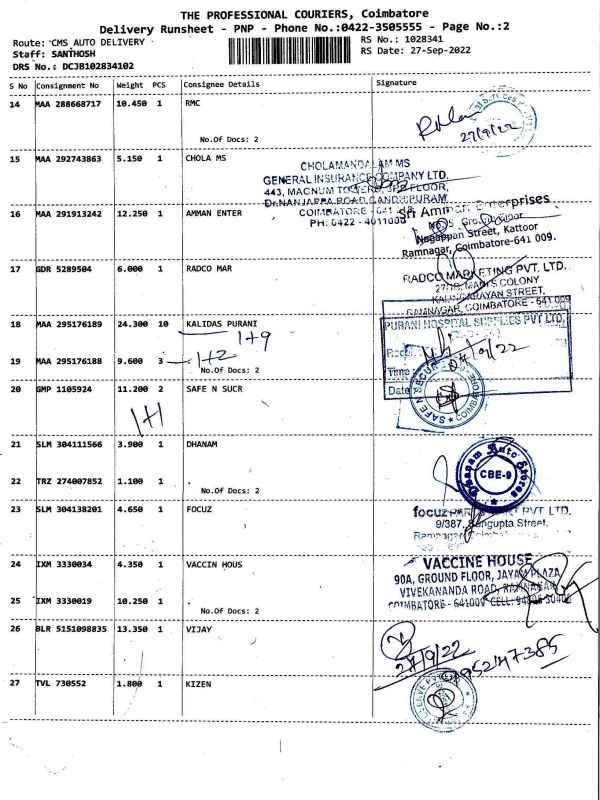 THE PROFESSIONAL COURIERS, Coimbatore
Delivery Runsheet - PNP - Phone No.:0422-3505555 - Page No.:2
Route: CMS AUTO DELIVERY
RS No.: 1028341
Staff: SANTHOSH
RS Date: 27-Sep-2022
DRS No.: DCJB102834102
S No Consignment No Weight PCS Consignee Details Signature
14 MAA 288668717 10.450 1 RMC
27/9/22
No.Of Docs: 2
15 MAA 292743863 5.150 1 CHOLA MS
CHOLAMANDALAM MS
GENERAL INSURANCE COMPANY LTD.
443, MAGNUM TOWERS, FLOOR,
Dr.NANJAPPA ROAD, GANDHIPURAM,
COIMBATORE - 641
PH: 0422 - 4011000
16 MAA 291913242 12.250 1 AMMAN ENTER
Sri Amman Enterprises
Ground Floor
Nagappan Street, Kattoor
Ramnagar, Coimbatore-641 009.
17 GDR 5289504 6.000 1 RADCO MAR
RADCO MARKETING PVT. LTD.
COLONY
KALINGARAYAN STREET,
RAMNAGAR, COIMBATORE - 641 009
18 MAA 295176189 24.300 10 KALIDAS PURANI
1+9
PURANI HOSPITAL SUPPLIES PVT LTD.
19 MAA 295176188 9.600 3
1+2
No.Of Docs: 2
Time
Date
20 GMP 1105924 11.200 2 SAFE N SUCR
1+1
SAFE N SECURE COIMBATORE
21 SLM 304111566 3.900 1 DHANAM
Dhanam Auto Stores
CBE-9
22 TRZ 274007852 1.100 1
No.Of Docs: 2
23 SLM 304138201 4.650 1 FOCUZ
focuz PVT LTD.
9/387, Sengupta Street.
24 IXM 3330034 4.350 1 VACCIN HOUS
VACCINE HOUSE
90A, GROUND FLOOR, JAYAM PLAZA
VIVEKANANDA ROAD, RAMNAGAR
COIMBATORE - 641009 CELL:
25 IXM 3330019 10.250 1
No.Of Docs: 2
26 BLR 5151098835 13.350 1 VIJAY
27/9/22
27 TVL 730552 1.800 1 KIZEN